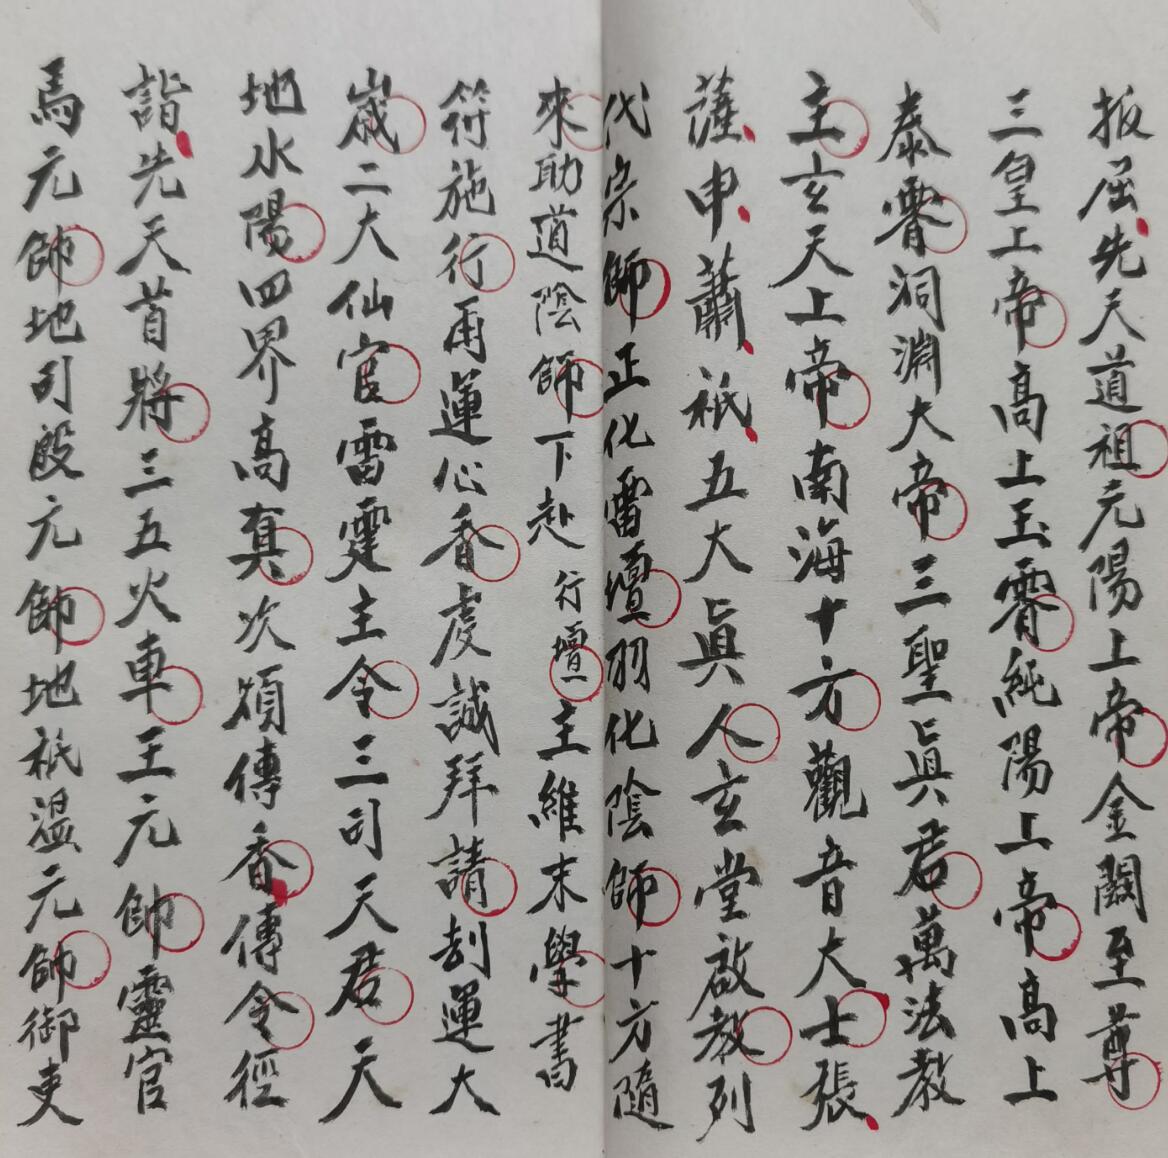 扳屈先天道祖元陽上帝金闕至尊
三皇上帝高上玉霄純陽上帝高上
泰霄洞淵大帝三聖眞君萬法教
主玄天上帝南海十方觀音大士張
薩申蕭祇五大眞人玄堂啟教列
代宗師正化雷壇羽化陰師十方隨
來助道陰師下赴行壇主維末學書
符施行再運心香虔誠拜請刮運大
歲二大仙官雷霆主令三司天君天
地水陽四界高真次煩傳香傳令徑
詣先天首將三五火車王元帥靈官
馬元帥地司殷元帥地祇溫元帥御吏